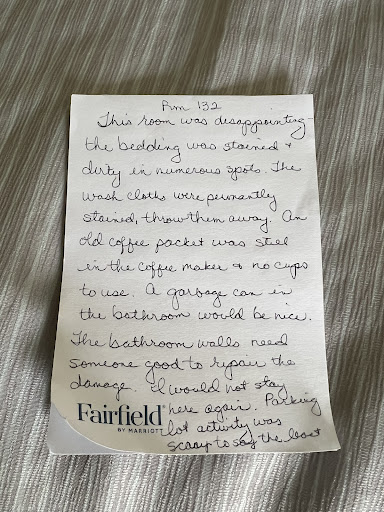 Rm 132
This room was disappointing -
the bedding was stained &
dirty in numerous spots. The
wash cloths were permantly
stained, throw them away. An
old coffee packet was still
in the coffee maker & no cups
to use. A garbage can in
the bathroom would be nice.
The bathroom walls need
someone good to repair the
damage. I would not stay
here again. Parking
lot activity was
scary to say the least
Fairfield
BY MARRIOTT